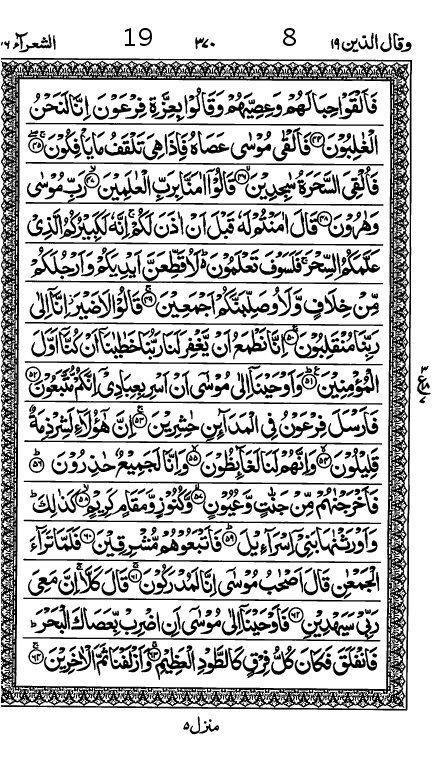 وقال الذين ١٩ 8 ٣٧٠ 19 الشعرآء ٢٦
فَاَلْقَوْا حِبَالَهُمْ وَعِصِيَّهُمْ وَقَالُوْا بِعِزَّةِ فِرْعَوْنَ اِنَّا لَنَحْنُ
الْغٰلِبُوْنَ ﴿٤٤﴾ فَاَلْقٰى مُوْسٰى عَصَاهُ فَاِذَا هِىَ تَلْقَفُ مَا يَاْفِكُوْنَ ﴿٤٥﴾
فَاُلْقِىَ السَّحَرَةُ سٰجِدِيْنَ ﴿٤٦﴾ قَالُوْۤا اٰمَنَّا بِرَبِّ الْعٰلَمِيْنَ ﴿٤٧﴾ رَبِّ مُوْسٰى
وَهٰرُوْنَ ﴿٤٨﴾ قَالَ اٰمَنْتُمْ لَهٗ قَبْلَ اَنْ اٰذَنَ لَكُمْ ۚ اِنَّهٗ لَكَبِيْرُكُمُ الَّذِىْ
عَلَّمَكُمُ السِّحْرَ ۚ فَلَسَوْفَ تَعْلَمُوْنَ ؕ لَاُقَطِّعَنَّ اَيْدِيَكُمْ وَاَرْجُلَكُمْ
مِّنْ خِلَافٍ وَّلَاُوصَلِّبَنَّكُمْ اَجْمَعِيْنَ ﴿٤٩﴾ قَالُوْا لَا ضَيْرَ ۫ اِنَّاۤ اِلٰى
رَبِّنَا مُنْقَلِبُوْنَ ﴿٥٠﴾ اِنَّا نَطْمَعُ اَنْ يَّغْفِرَ لَنَا رَبُّنَا خَطٰيٰنَاۤ اَنْ كُنَّاۤ اَوَّلَ
الْمُؤْمِنِيْنَ ﴿٥١﴾ وَاَوْحَيْنَاۤ اِلٰى مُوْسٰۤى اَنْ اَسْرِ بِعِبَادِىْۤ اِنَّكُمْ مُّتَّبَعُوْنَ ﴿٥٢﴾
فَاَرْسَلَ فِرْعَوْنُ فِى الْمَدَآئِنِ حٰشِرِيْنَ ﴿٥٣﴾ اِنَّ هٰٓؤُلَآءِ لَشِرْذِمَةٌ
قَلِيْلُوْنَ ﴿٥٤﴾ وَاِنَّهُمْ لَنَا لَغَآئِظُوْنَ ﴿٥٥﴾ وَاِنَّا لَجَمِيْعٌ حٰذِرُوْنَ ﴿٥٦﴾
فَاَخْرَجْنٰهُمْ مِّنْ جَنّٰتٍ وَّعُيُوْنٍ ﴿٥٧﴾ وَّكُنُوْزٍ وَّمَقَامٍ كَرِيْمٍ ﴿٥٨﴾ كَذٰلِكَ ؕ
وَاَوْرَثْنٰهَا بَنِىْۤ اِسْرَآءِيْلَ ﴿٥٩﴾ فَاَتْبَعُوْهُمْ مُّشْرِقِيْنَ ﴿٦٠﴾ فَلَمَّا تَرَآءَ
الْجَمْعٰنِ قَالَ اَصْحٰبُ مُوْسٰۤى اِنَّا لَمُدْرَكُوْنَ ﴿٦١﴾ قَالَ كَلَّا ۚ اِنَّ مَعِىَ
رَبِّىْ سَيَهْدِيْنِ ﴿٦٢﴾ فَاَوْحَيْنَاۤ اِلٰى مُوْسٰۤى اَنِ اضْرِبْ بِّعَصَاكَ الْبَحْرَ ؕ
فَانْفَلَقَ فَكَانَ كُلُّ فِرْقٍ كَالطَّوْدِ الْعَظِيْمِ ﴿٦٣﴾ وَاَزْلَفْنَا ثَمَّ الْاٰخَرِيْنَ ﴿٦٤﴾
منزل ٥